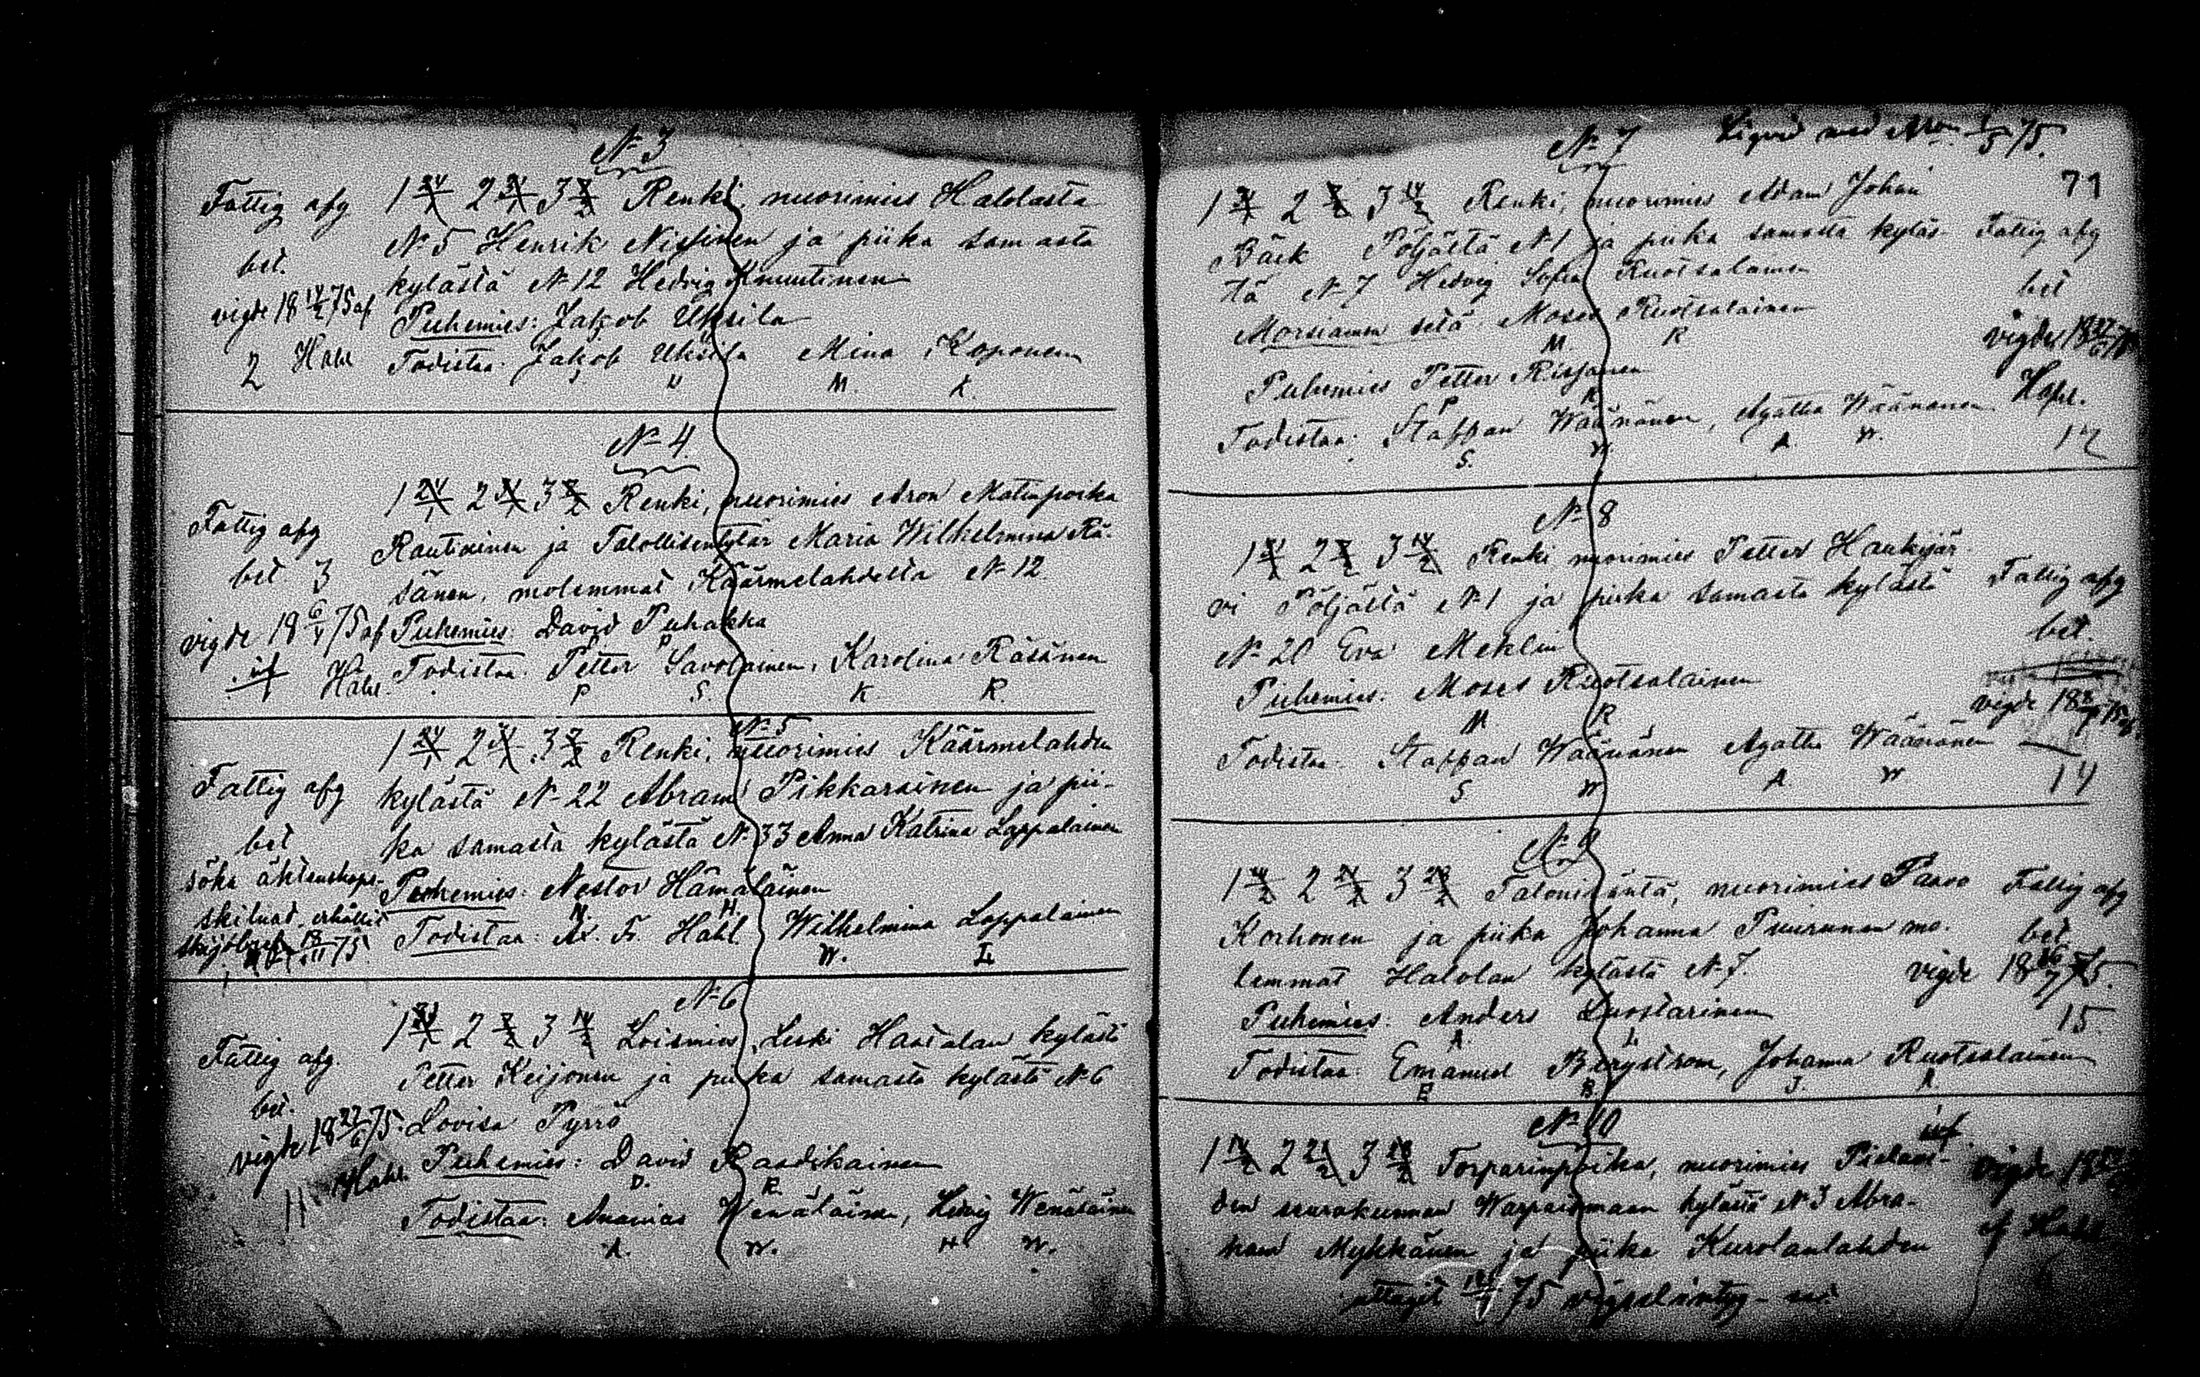 N 3
Fattig afg
bet.
vigde 18 14/2 75 af
2 Hahl
1 24/1 2 31/1 3 2/2 Renki, nuorimies Halolasta
N 5 Henrik Nissinen ja piika samasta
kylästä N 12 Hedvig Knuutinen
Puhemies: Jakob Uksila
Todistaa: Jakob Uksila Mina Koponen
J U M K.
N 4
Fattig afg
bet. 3
vigde 18 6/4 75 af
Hahl
1 24/1 2 31/1 3 2/2 Renki, nuorimies Aron Matinpoika
Rautiainen ja Talollisentytär Maria Wilhelmina Rä-
sänen, molemmat Käärmelahdesta N 12
Puhemies: David Puhakka
P
Todistaa: Petter Savolainen, Karolina Räsänen
P S. K R.
N 5
Fattig afg
bet
söka äktenskaps-
skilnad, erhållit
75.
1 24/1 2 31/1 3 2/2 Renki, nuorimies Käärmelahden
kylästä N 22 Abram Pikkarainen ja pii-
ka samasta kylästä N 33 Anna Katrina Lappalainen
Puhemies: Nestor Hämäläinen
N. H.
Todistaa: Ax. Fr. Hahl Wilhelmina Lappalainen
W. L
N 6
Fattig afg.
bet.
vigde 18 27/6 75.
11 Hahl.
1 31/1 2 2/2 3 14/2 Loismies, Leski Haatalan kylästä
Petter Keijonen ja piika samasta kylästä N 6
Lovisa Pyrrö
Puhemies: David Raadikainen
D. R.
Todistaa: Ananias Wenäläinen, Hedvig Wenäläinen
A. W. H W.
N 7
Liqvid med 75.
71
1 2 3 14/2 Renki, nuorimies Adam Johan
Bäck Pöljältä N 1 ja piika samasta kyläs-
tä N 7 Hedvig Sofia Ruotsalainen
Morsiamen setä Moses Ruotsalainen
M. R
Puhemies Petter Rissanen
P R
Todistaa: Staffan Wäänänen, Agatha Wäänänen
S. W. A W.
Fattig afg
bet
vigde 18 27/6 75
Hahl.
12
N 8
1 2 3 14/2 Renki nuorimies Petter Haukijär-
vi Pöljältä N 1 ja piika samasta kylästä
N 20 Eva Meklin
Puhemies: Moses Ruotsalainen
M R
Todistaa: Staffan Wäänänen Agatha Wäänänen
S W A W
Fattig afg
bet.
vigde 18 75
14
N 9
1 14/2 2 21/2 3 28/2 Talonisäntä, nuorimies Paavo
Korhonen ja piika Johanna Puurunen mo-
lemmat Halolan kylästä N 7.
Puhemies: Anders Luostarinen
A L
Todistaa: Emanuel Bergström, Johanna Ruotsalainen
E B J R
Fattig afg
bet
vigde 18 75.
15
N 10
1 14/2 2 21/2 3 28/2 Torparinpoika, nuorimies Pielave-
den seurakunnan Warpaismaan kylästä N 3 Abra-
ham Mykkänen ja piika Kurolanlahden
uttagit 75 vigselintyg
vigde 18
af Hahl